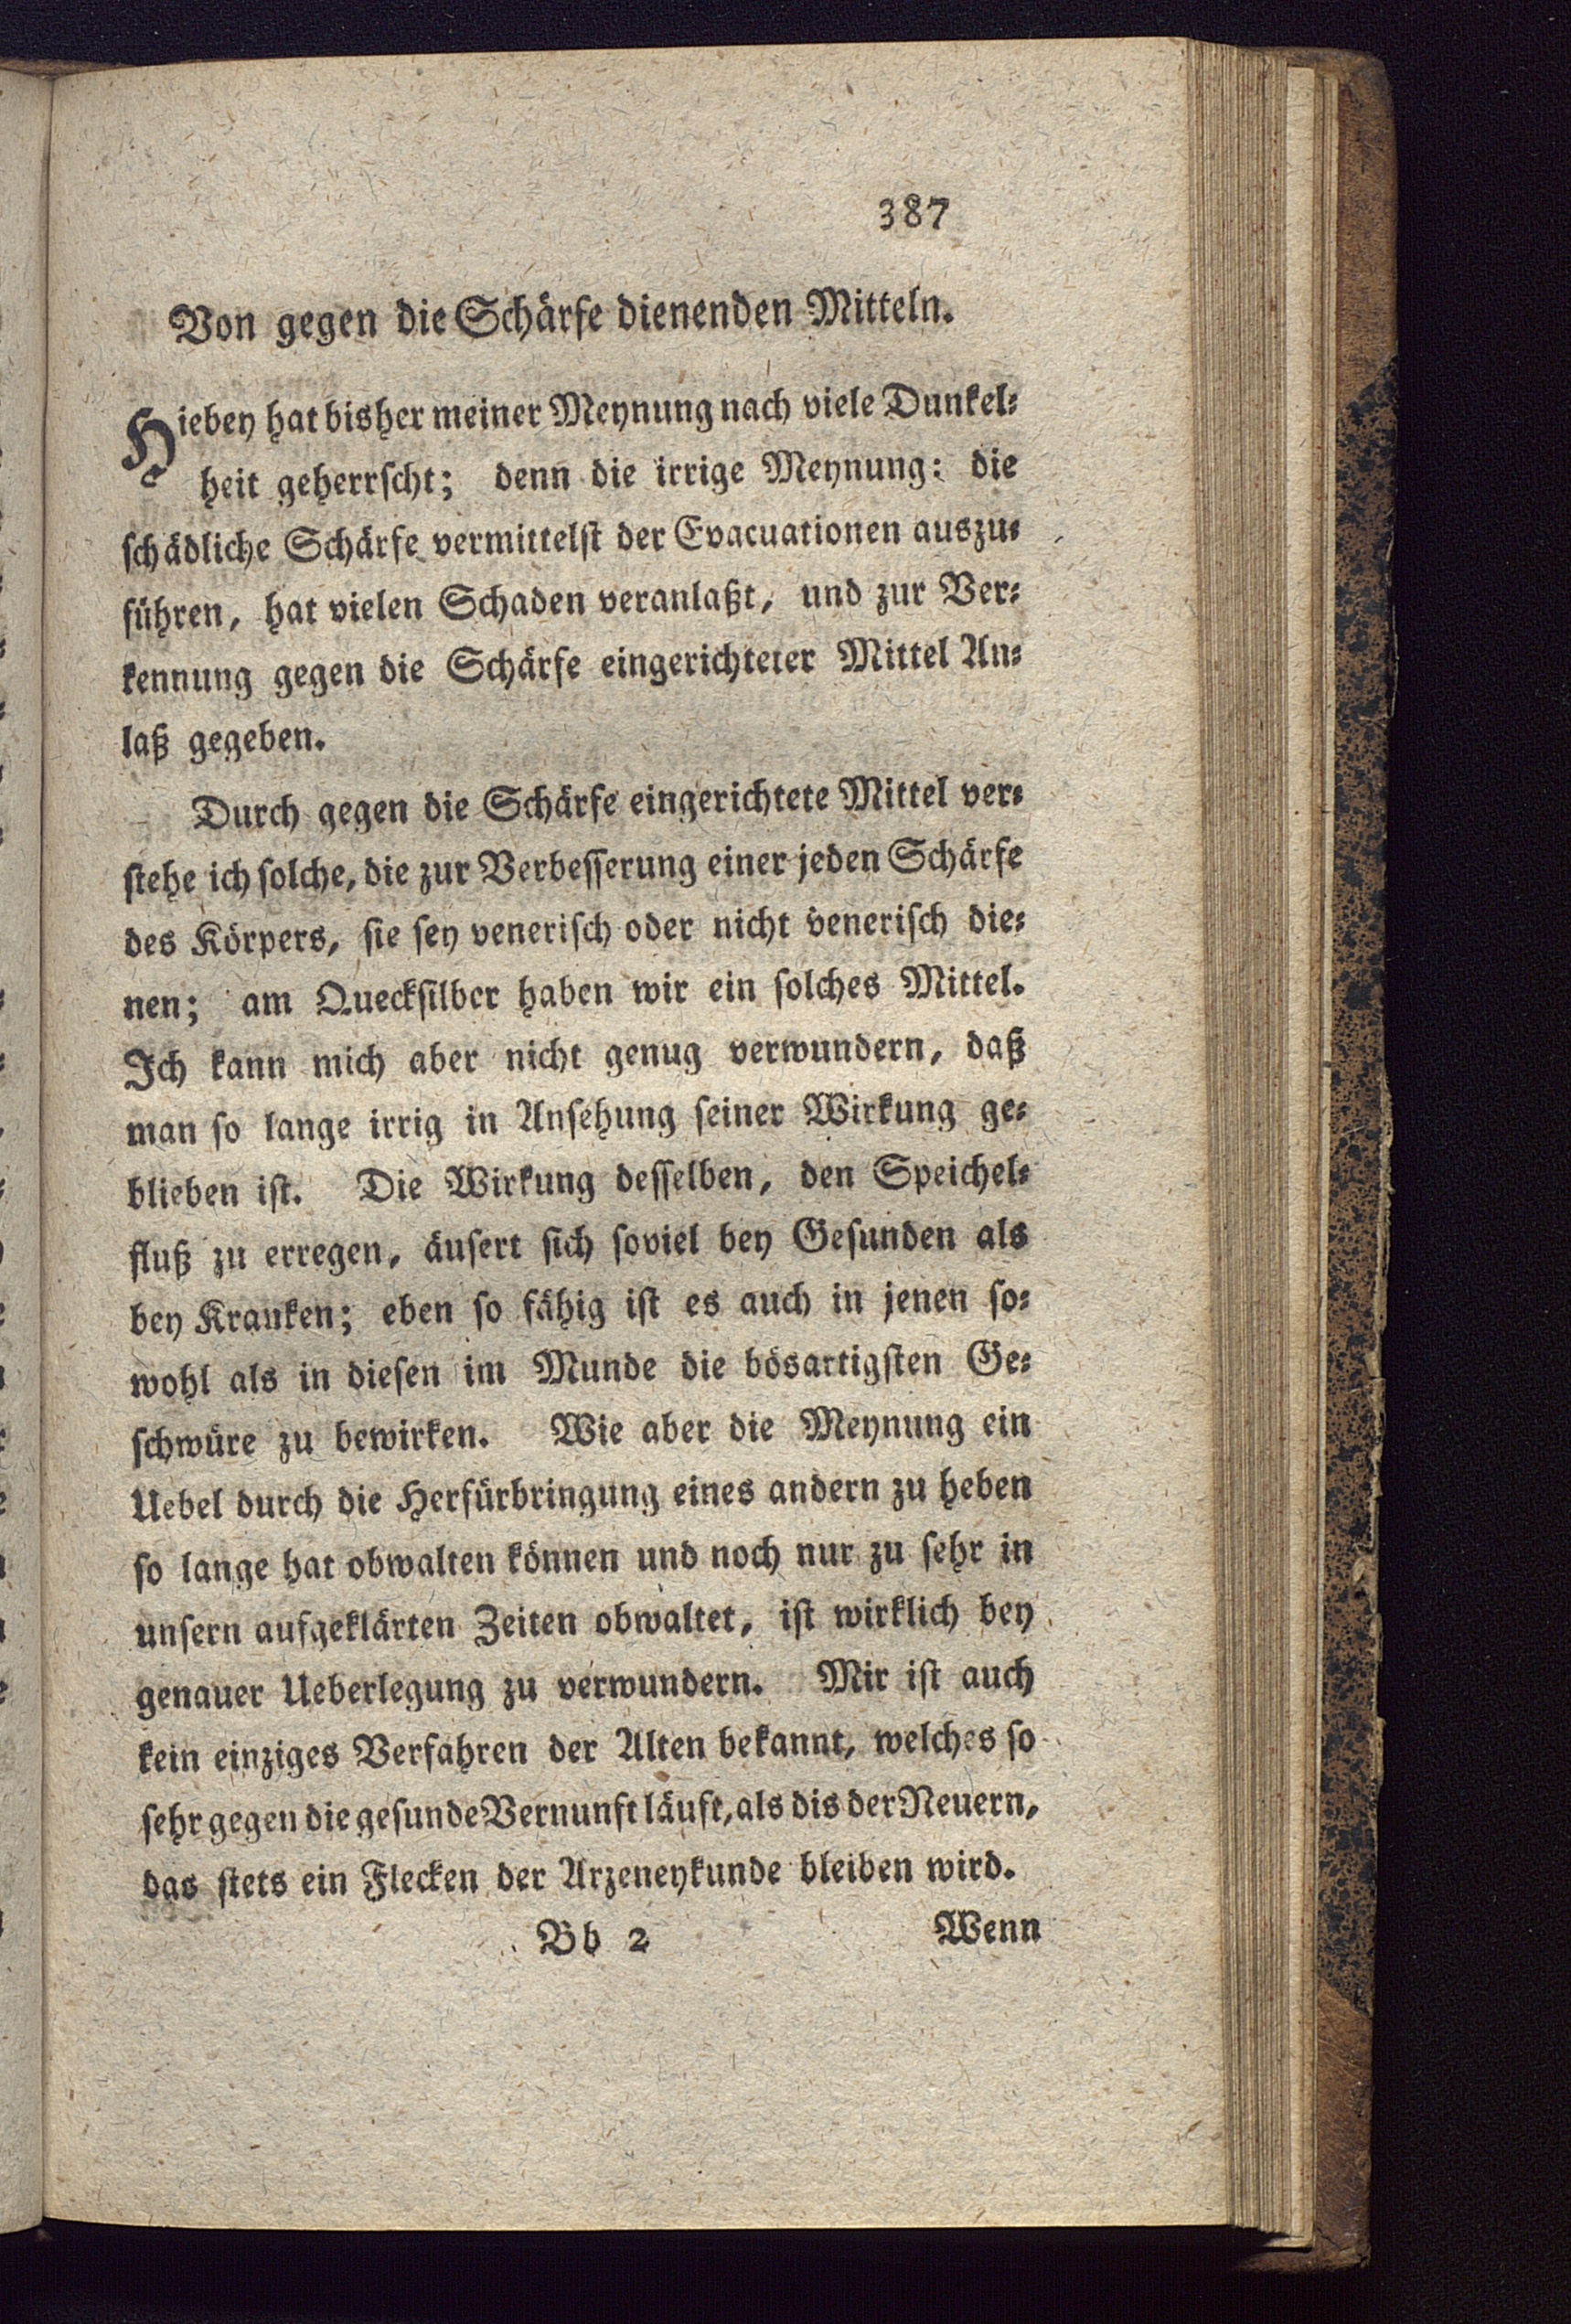 387
Von gegen die Schärfe dienenden Mitteln.
Hiebey hat bisher meiner Meynung nach viele Dunkel⸗
heit geherrſcht; denn die irrige Meynung: die
ſchädliche Schärfe vermittelſt der Evacuationen auszu⸗
führen, hat vielen Schaden veranlaßt, und zur Ver⸗
kennung gegen die Schärfe eingerichteter Mittel An⸗
laß gegeben.
Durch gegen die Schärfe eingerichtete Mittel ver⸗
ſtehe ich ſolche, die zur Verbeſſerung einer jeden Schärfe
des Körpers, ſie ſey veneriſch oder nicht veneriſch die⸗
nen; am Queckſilber haben wir ein ſolches Mittel.
Ich kann mich aber nicht genug verwundern, daß
man ſo lange irrig in Anſehung ſeiner Wirkung ge⸗
blieben iſt. Die Wirkung deſſelben, den Speichel⸗
fluß zu erregen, äuſert ſich ſoviel bey Geſunden als
bey Kranken; eben ſo fähig iſt es auch in jenen ſo⸗
wohl als in dieſen im Munde die bösartigſten Ge⸗
ſchwüre zu bewirken. Wie aber die Meynung ein
Uebel durch die Herfürbringung eines andern zu heben
ſo lange hat obwalten können und noch nur zu ſehr in
unſern aufgeklärten Zeiten obwaltet, iſt wirklich bey
genauer Ueberlegung zu verwundern. Mir iſt auch
kein einziges Verfahren der Alten bekannt, welches ſo
ſehr gegen die geſunde Vernunft läuft, als dis der Neuern,
das ſtets ein Flecken der Arzeneykunde bleiben wird.
Bb 2 Wenn